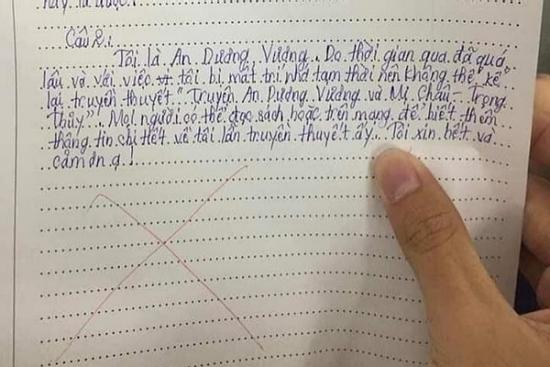 này là được!
Câu 2:
Tôi là An Dương Vương. Do thời gian qua đã quá
lâu và với việc tôi bị mất trí nhớ tạm thời nên không thể "kể
lại truyền thuyết" Truyện An Dương Vương và Mị Châu - Trọng
Thủy"! Mọi người có thể đọc sách hoặc trên mạng để biết thêm
thông tin chi tiết về tôi lẫn truyền thuyết ấy. Tôi xin hết và
cảm ơn ạ!